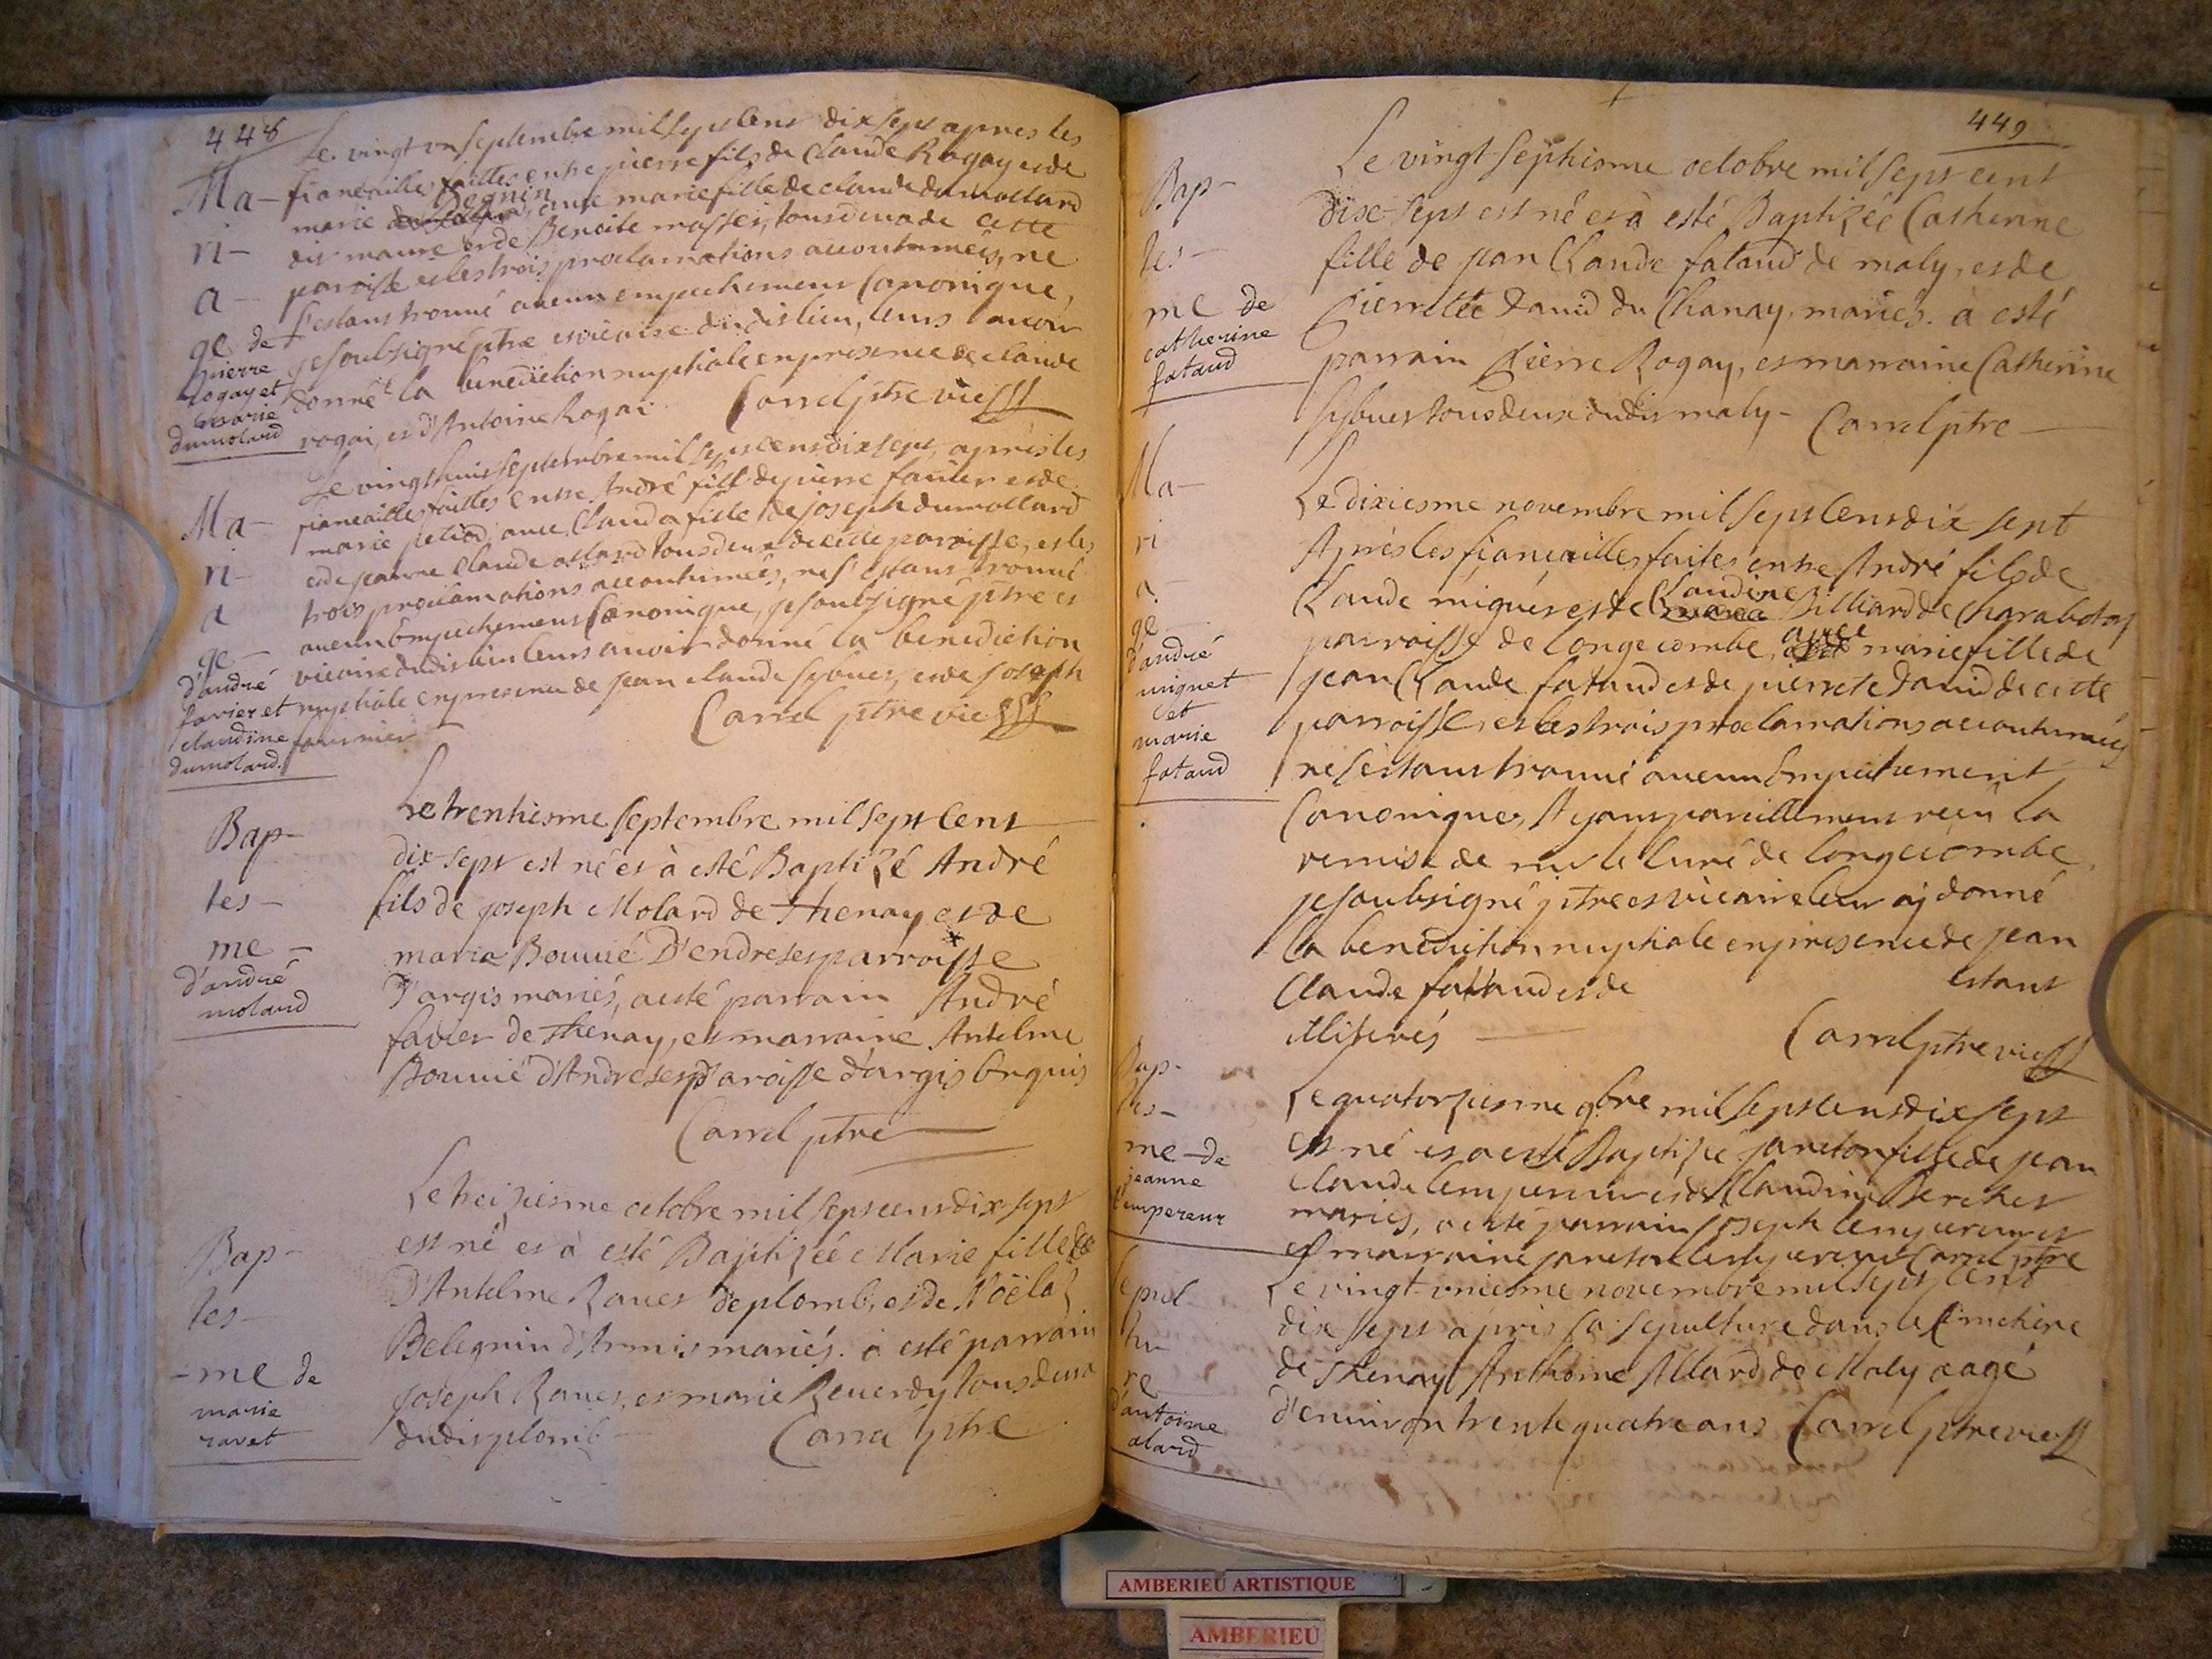 448
Le vingt un septembre mil sept cent dix sept apres les
Ma- fiancailles faittes entre pierre fils de Claude Rogay et de
marie Begnin avec marie fille de claude dumollard
ri- dit maure et de Benoite massei, tous deux de cette
paroisse et les trois proclamations accoutumées, ne
a- s'estant trouvé aucun empechement Canonique,
ge de je soubsigné ptre et vicaire dudit lieu, leurs avoir
pierre donné la benediction nuptiale en presence de claude
rogay et
marie rogai, et d'Antoine Rogai Carrel ptre vic
dumolard
Le vingt huit septembre mil sept cent dix sept, apres les
Ma- fiancailles faittes entre André fils de pierre favier et de
marie petiod, avec Clauda fille de joseph dumollard
ri- et de jeanne Claude allard tous deux de cette paroisse, et les
trois proclamations accoutumées, ne s'estant trouvé
a aucun Empechement Canonique, je soubsigné ptre et
ge- vicaire dudit lieu leurs avoir donné la benediction
d'andré
favier et nuptiale en presence de jean claude sybuet, et de joseph
claudine fournier Carrel ptre vic
dumolard.
Le trentiesme septembre mil sept Cent
Bap- dix sept est né et à esté Baptizé André
tes- fils de joseph Molard de Thenay et de
me- maria Bouvié D'endreses parroisse
d'andré
molard D'argis mariés, a esté parrain André
favier de Thenay, et marraine Antelme
Bouvié d'Andreses parroisse d'argis Enquis
Carrel ptre
Le treiziesme octobre mil sept cent dix sept
Bap- est né et à esté Baptizée Marie fille
tes- D'Antelme Ravet de plomb, et de Noëla
Belegnin d'Armis mariés. à esté parrain
-me de joseph Ravet, et marie Reverdy tous deux
marie
ravet dudit plomb Carrel ptre
449
Le vingt septiesme octobre mil sept cent
Bap- dix-sept est né et à esté Baptizée Catherine
tes- fille de jean Claude fataud de maly, et de
me de Pierrette David du Chanay, mariés. a esté
catherine parrain Pierre Rogay, et marraine Catherine
fataud
sybuet tous deux dudit maly - Carrel ptre
Ma- Le dixiesme novembre mil sept cent dix sept
ri Apres les fiancailles faites entre André fils de
a- Claude miguet et de Claudine Billiard de Charabotay
ge parroisse de longecombe, avec marie fille de
d'andré
miguet jean Claude fataud et de pierrete David de cette
et
marie parroisse, et les trois proclamations accoutumées
fataud ne s'estant trouvé aucun Empechement
Canonique, Ayant pareillement reçû la
remise de mr le Curé de longecombe
je soubsigné ptre et vicaire leur aj donné
la benediction nuptiale en presence de jean
Claude fataud et de estant
illiterés Carrel ptre vic
Bap- Le quatorziesme 9bre mil sept cent dix sept
tes- est né et a esté Baptizée janeton fille de jean
me-de claude l'empereur et de Claudine Berthet
jeanne
l'empereur mariés, a esté parrain joseph l'empereur et
et marraine janeton l'empereur Carrel ptre
sepul Le vingt-uniesme novembre mil sept cent
tu dix sept a pris sa sepulture dans le Cimetiere
re de Thenay Anthoine Allard de Maly aagé
d'antoine
alard d'environ trente quatre ans Carrel ptre vic
AMBERIEU ARTISTIQUE
AMBERIEU